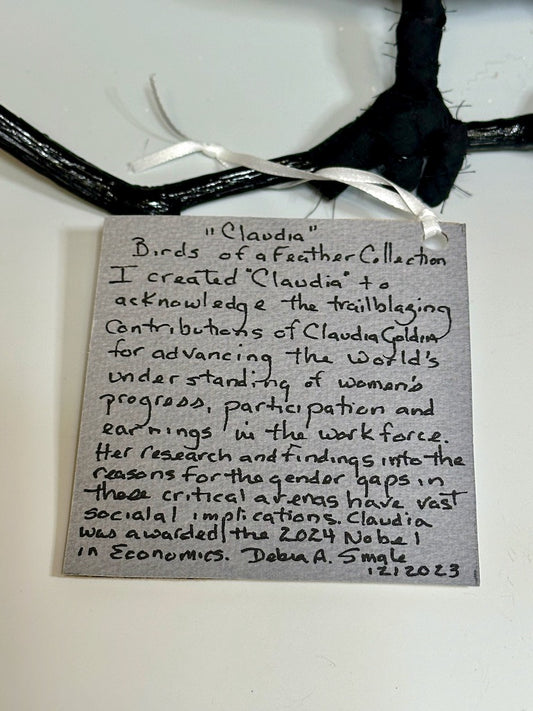 "Claudia"
Birds of a Feather Collection
I created "Claudia" to
acknowledge the trailblazing
contributions of Claudia Goldin
for advancing the world's
understanding of women's
progress, participation and
earnings in the workforce.
Her research and findings into the
reasons for the gender gaps in
these critical arenas have vast
socialal implications. Claudia
was awarded the 2024 Nobel
in Economics. Debra A. Smale
12/2023